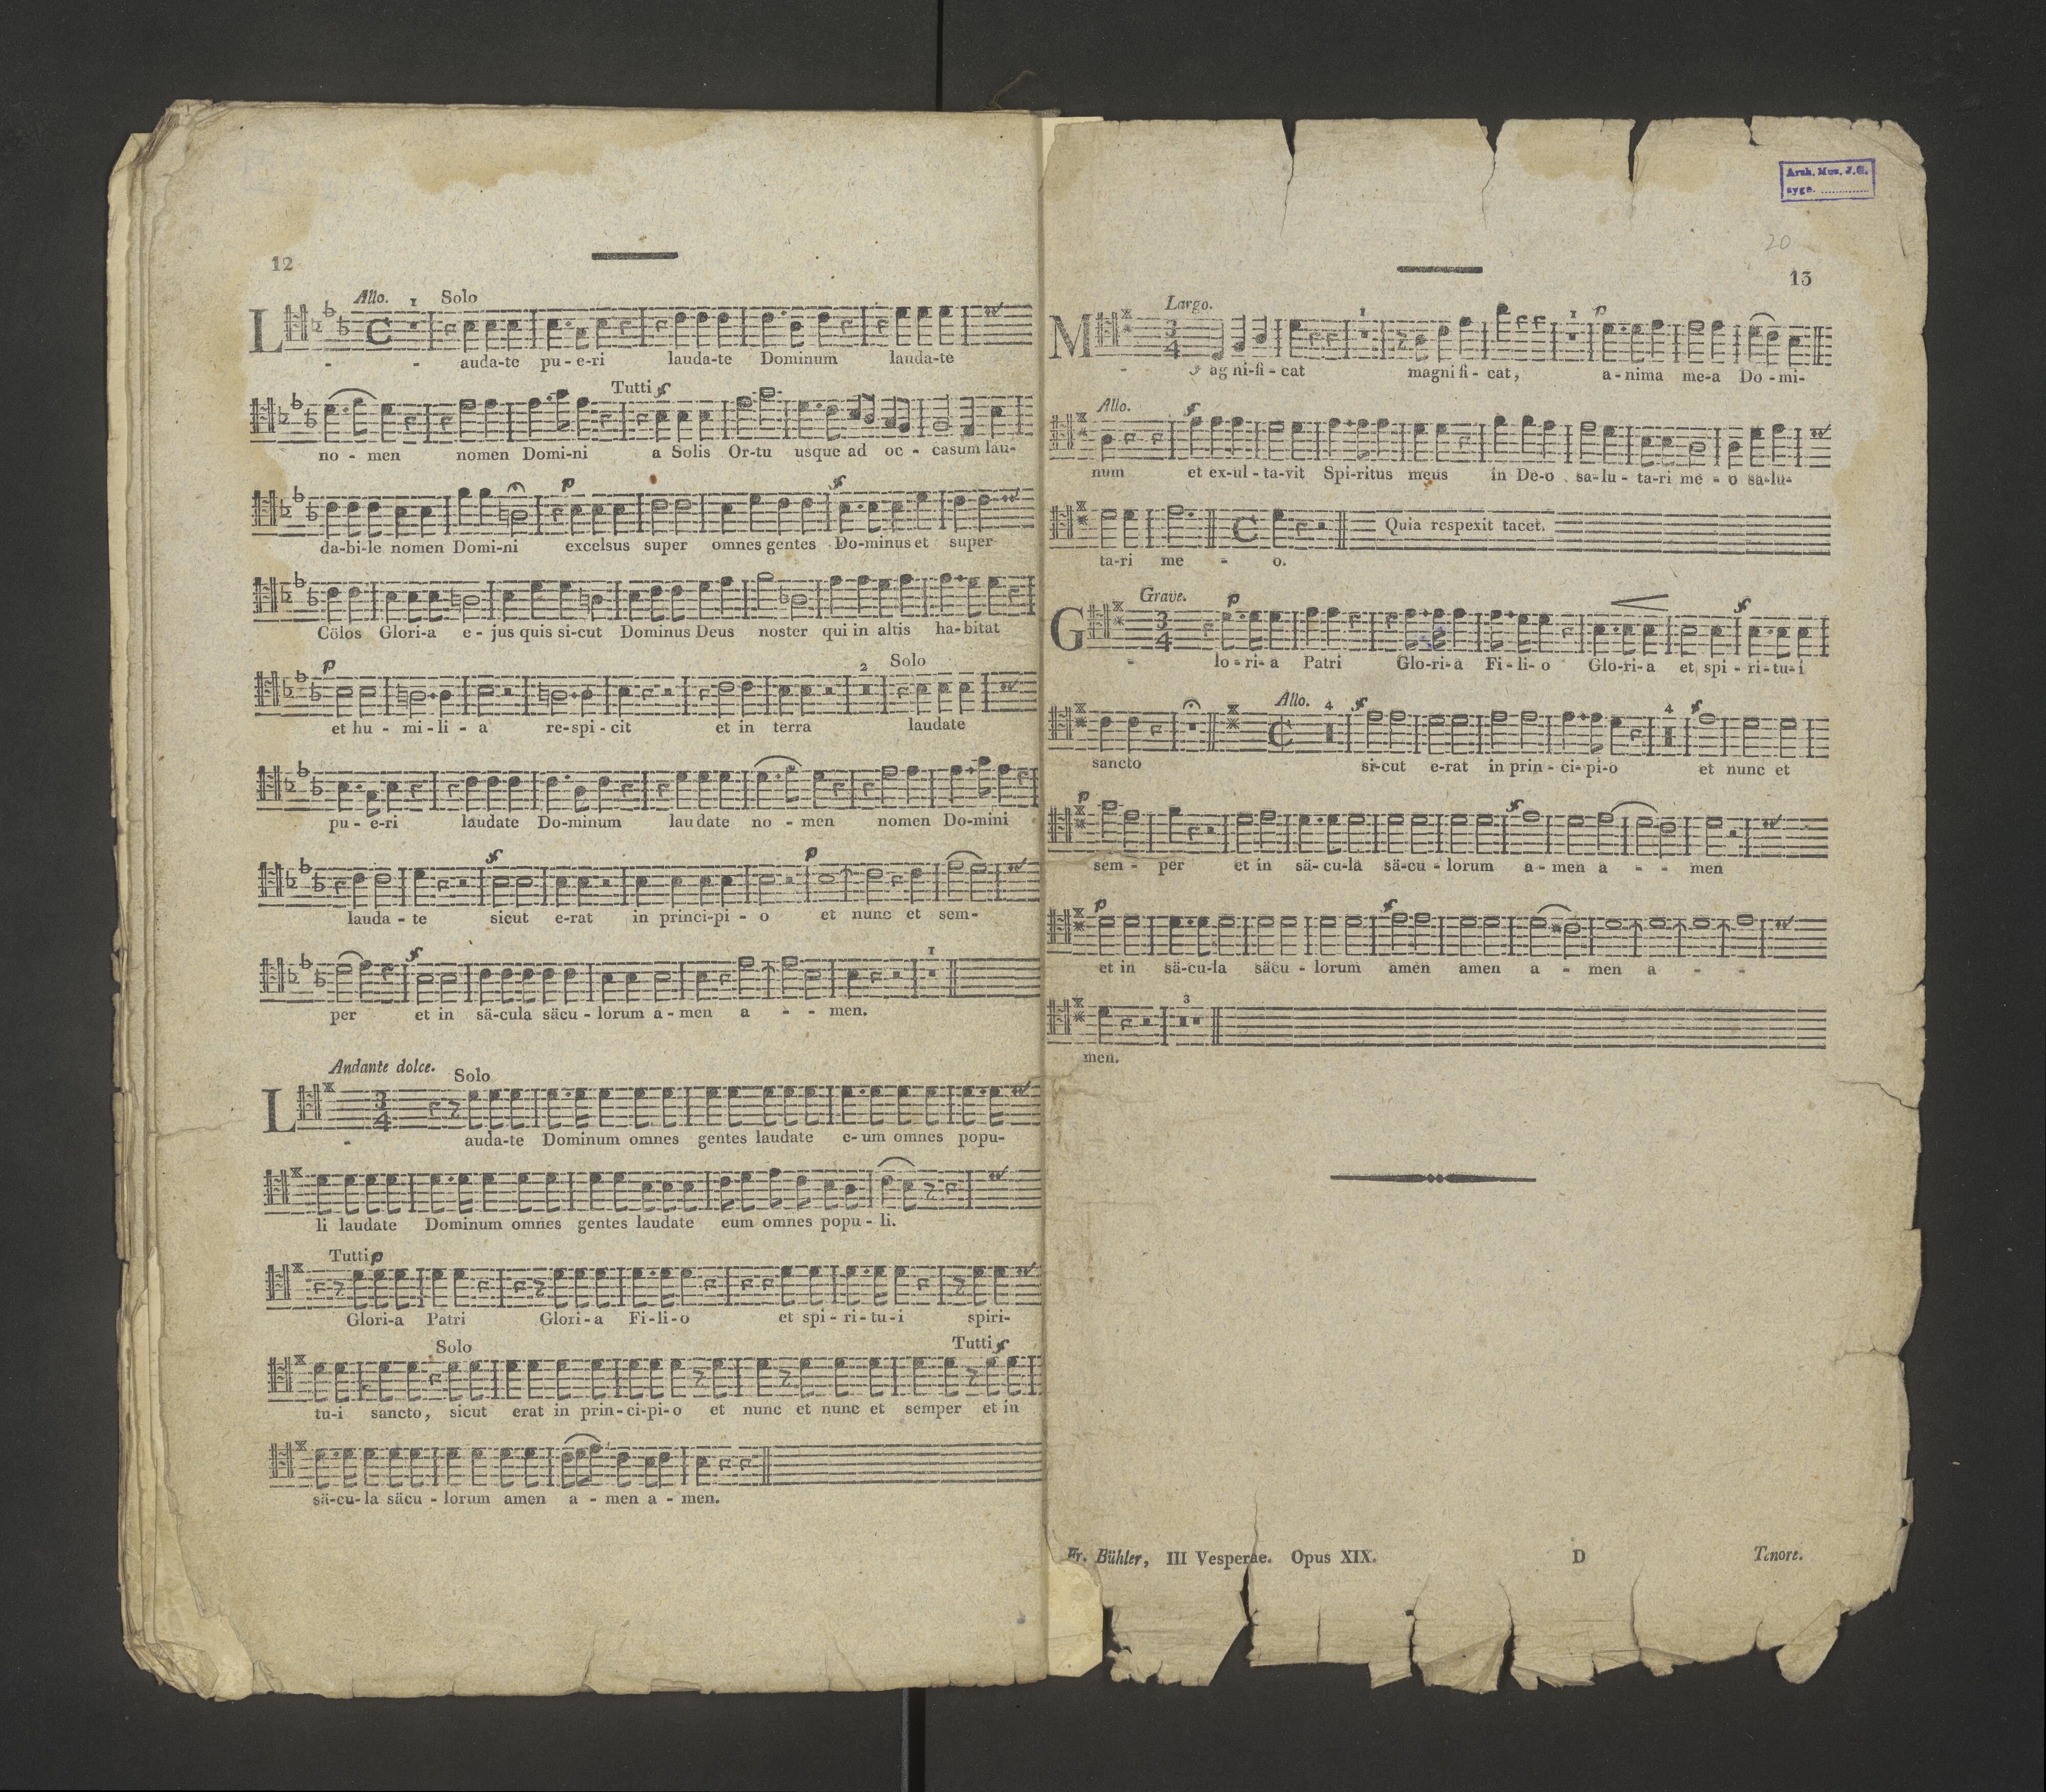 12
Allo. 1 Solo
L - - auda-te pu-e-ri lauda-te Dominum lauda-te
Tutti f
no - men nomen Domi-ni a Solis Or-tu usque ad oc - casum lau-
p f
da-bi-le nomen Domi-ni excelsus super omnes gentes Do-minus et super
Cölos Glori-a e-jus quis si-cut Dominus Deus noster qui in altis ha-bitat
p 2 Solo
et hu - mi-li-a re-spi-cit et in terra laudate
pu-e-ri laudate Do-minum laudate no - men nomen Do-mini
f p
lauda-te sicut e-rat in princi-pi-o et nunc et sem-
f 1
per et in sä-cula säcu-lorum a-men a - - men.
Andante dolce.
Solo
L 3/4 - auda-te Dominum omnes gentes laudate e-um omnes popu-
li laudate Dominum omnes gentes laudate eum omnes popu-li.
Tutti p
Glori-a Patri Glori-a Fi-li-o et spi-ri-tu-i spiri-
Solo Tutti f
tu-i sancto, sicut erat in prin-ci-pi-o et nunc et nunc et semper et in
sä-cu-la säcu-lorum amen a-men a-men.
Arch. Muz. J.G.
sygn. ............
20
13
Largo.
1 1 p
M 3/4 - ag ni-fi-cat magni fi-cat, a-nima me-a Do-mi-
Allo. f
num et ex-ul-ta-vit Spi-ritus meus in De-o sa-lu-ta-ri me-o sa-lu-
Quia respexit tacet.
ta-ri me - o.
Grave. p f
G 3/4 - lo-ri-a Patri Glo-ri-a Fi-li-o Glo-ri-a et spi-ri-tu-i
Allo. 4 f 4 f
sancto si-cut e-rat in prin-ci-pi-o et nunc et
p f
sem-per et in sä-cu-la sä-cu-lorum a-men a - - men
p f
et in sä-cu-la säcu-lorum amen amen a-men a - - -
3
men.
Fr. Bühler, III Vesperae. Opus XIX. D Tenore.